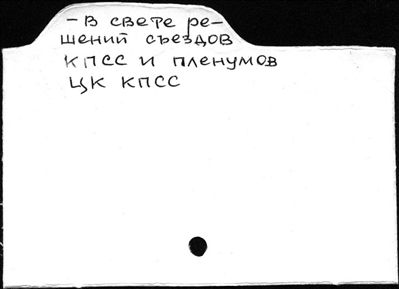 – В свете ре-
шений съездов
КПСС и пленумов
ЦК КПСС